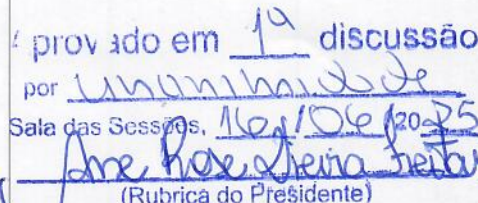 provado em 1ª discussão
por unanimidade
Sala das Sessões, 16/06/2025
Ane Rose Freitas
(Rubrica do Presidente)